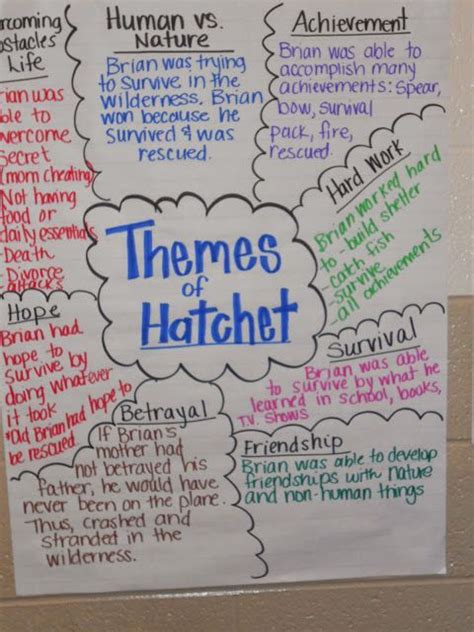 coming
bstacles
Life
rian was
ble to
vercome
Secret
(mom cheating)
Not having
food or
daily essentials
-Death
-Divorce
attacks
Human vs.
Nature
Brian was trying
to survive in the
wilderness. Brian
won because he
survived & was
rescued.
Achievement
Brian was able to
accomplish many
achievements: Spear,
bow, survival
pack, fire,
rescued.
Hard Work
Brian worked hard
to - build shelter
- catch fish
- survive
- all achievements
Themes
of
Hatchet
Hope
Brian had
hope to
survive by
doing whatever
it took.
Brian had hope to
be rescued.
Survival
Brian was able
to survive by what he
learned in school, books,
T.V. shows
Betrayal
If Brian's
mother had
not betrayed his
father, he would have
never been on the plane.
Thus, crashed and
stranded in the
wilderness.
Friendship
Brian was able to develop
friendships with nature
and non-human things